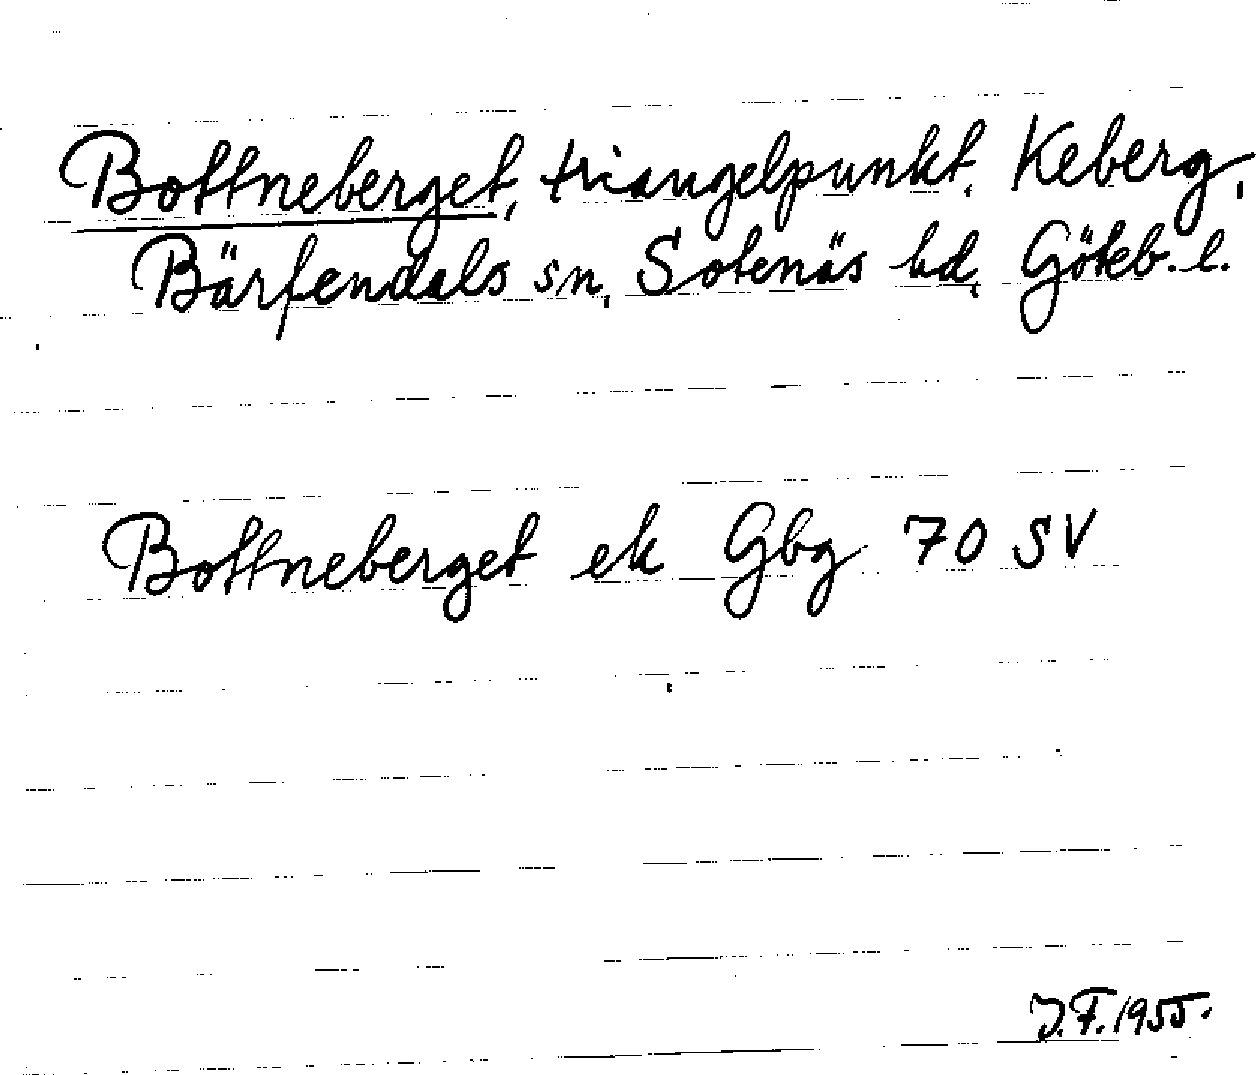 Bottneberget, triangelpunkt, Keberg,
Bärfendals sn, Sotenäs hd, Göteb. l.
Bottneberget ek Gbg 70 SV
J.F. 1955.